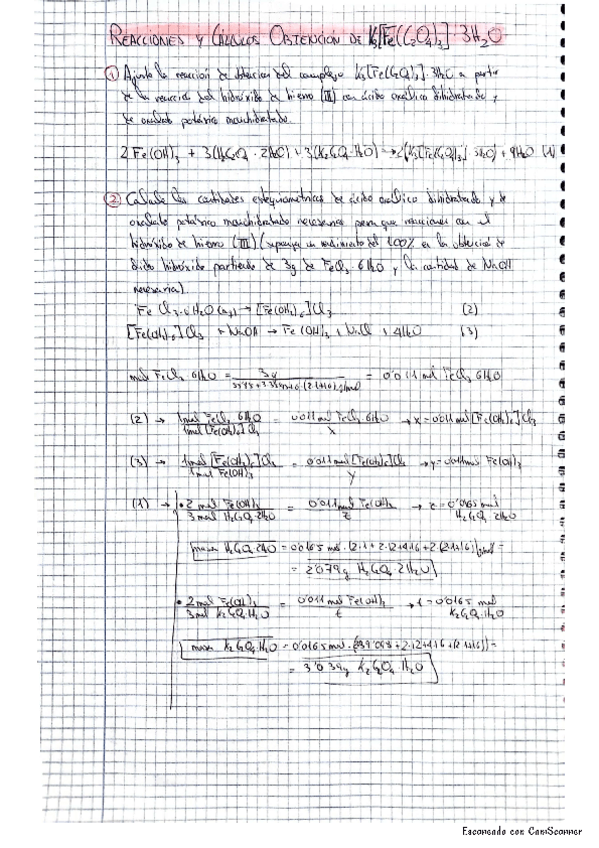 REACCIONES Y CÁLCULOS OBTENCIÓN DE K₃[Fe(C₂O₄)₃]·3H₂O
① Ajusta la reacción de obtención del complejo K₃[Fe(C₂O₄)₃]·3H₂O a partir
de la reacción del hidróxido de hierro (III) con ácido oxálico dihidratado y
de oxalato potásico monohidratado.
2Fe(OH)₃ + 3(H₂C₂O₄·2H₂O) + 3(K₂C₂O₄·H₂O) → 2(K₃[Fe(C₂O₄)₃]·3H₂O) + 9H₂O (1)
② Calcule las cantidades estequiométricas de ácido oxálico dihidratado y de
oxalato potásico monohidratado necesarias para que reaccionen con el
hidróxido de hierro (III) (suponga un rendimiento del 100% en la obtención de
dicho hidróxido partiendo de 3g de FeCl₃·6H₂O y la cantidad de NaOH
necesaria).
FeCl₃·6H₂O (aq) → [Fe(OH₂)₆]Cl₃ (2)
[Fe(OH₂)₆]Cl₃ + NaOH → Fe(OH)₃ + NaCl + H₂O (3)
mol FeCl₃·6H₂O = 3g / = 0'011 mol FeCl₃·6H₂O
(2) → 1mol FeCl₃·6H₂O / 1mol [Fe(OH₂)₆]Cl₃ = 0'011 mol FeCl₃·6H₂O / x → x = 0'011 mol [Fe(OH₂)₆]Cl₃
(3) → 1mol [Fe(OH₂)₆]Cl₃ / 1mol Fe(OH)₃ = 0'011 mol [Fe(OH₂)₆]Cl₃ / y → y = 0'011 mol Fe(OH)₃
(1) → • 2 mol Fe(OH)₃ / 3 mol H₂C₂O₄·2H₂O = 0'011 mol Fe(OH)₃ / z → z = 0'0165 mol H₂C₂O₄·2H₂O
masa H₂C₂O₄·2H₂O = 0'0165 mol · (2·1+2·12+4·16+2·(2·1+16)) g/mol =
= 2'079g H₂C₂O₄·2H₂O
• 2 mol Fe(OH)₃ / 3 mol K₂C₂O₄·H₂O = 0'011 mol Fe(OH)₃ / t → t = 0'0165 mol K₂C₂O₄·H₂O
masa K₂C₂O₄·H₂O = 0'0165 mol ·
= 3'039g K₂C₂O₄·H₂O
Escaneado con CamScanner